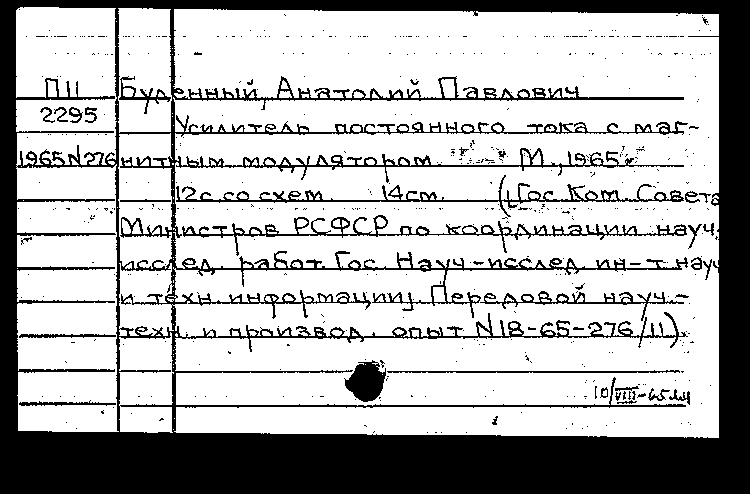 П11 Буденный, Анатолий Павлович
2295 Усилитель постоянного тока с маг-
1965 N276 нитным модулятором. М., 1965.
12с. со схем. 14см. (Гос. Ком. Совета
Министров РСФСР по координации науч.
исслед. работ. Гос. Науч.-исслед. ин-т науч
и техн. информации. Передовой науч.-
техн. и производ. опыт N18-65-276/11).
10/VIII-65